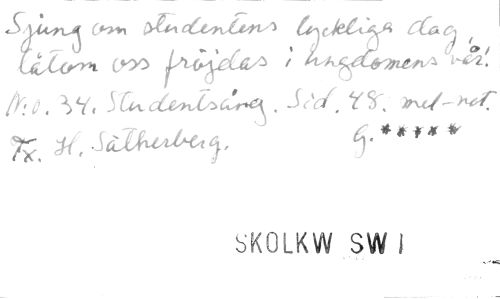 Sjung om studentens lyckliga dag,
låtom oss fröjdas i ungdomens vår!
N:o. 34. Studentsång. Sid. 48. mel-not.
Tx. H. Sätherberg. G. *****
SKOLKW SW I